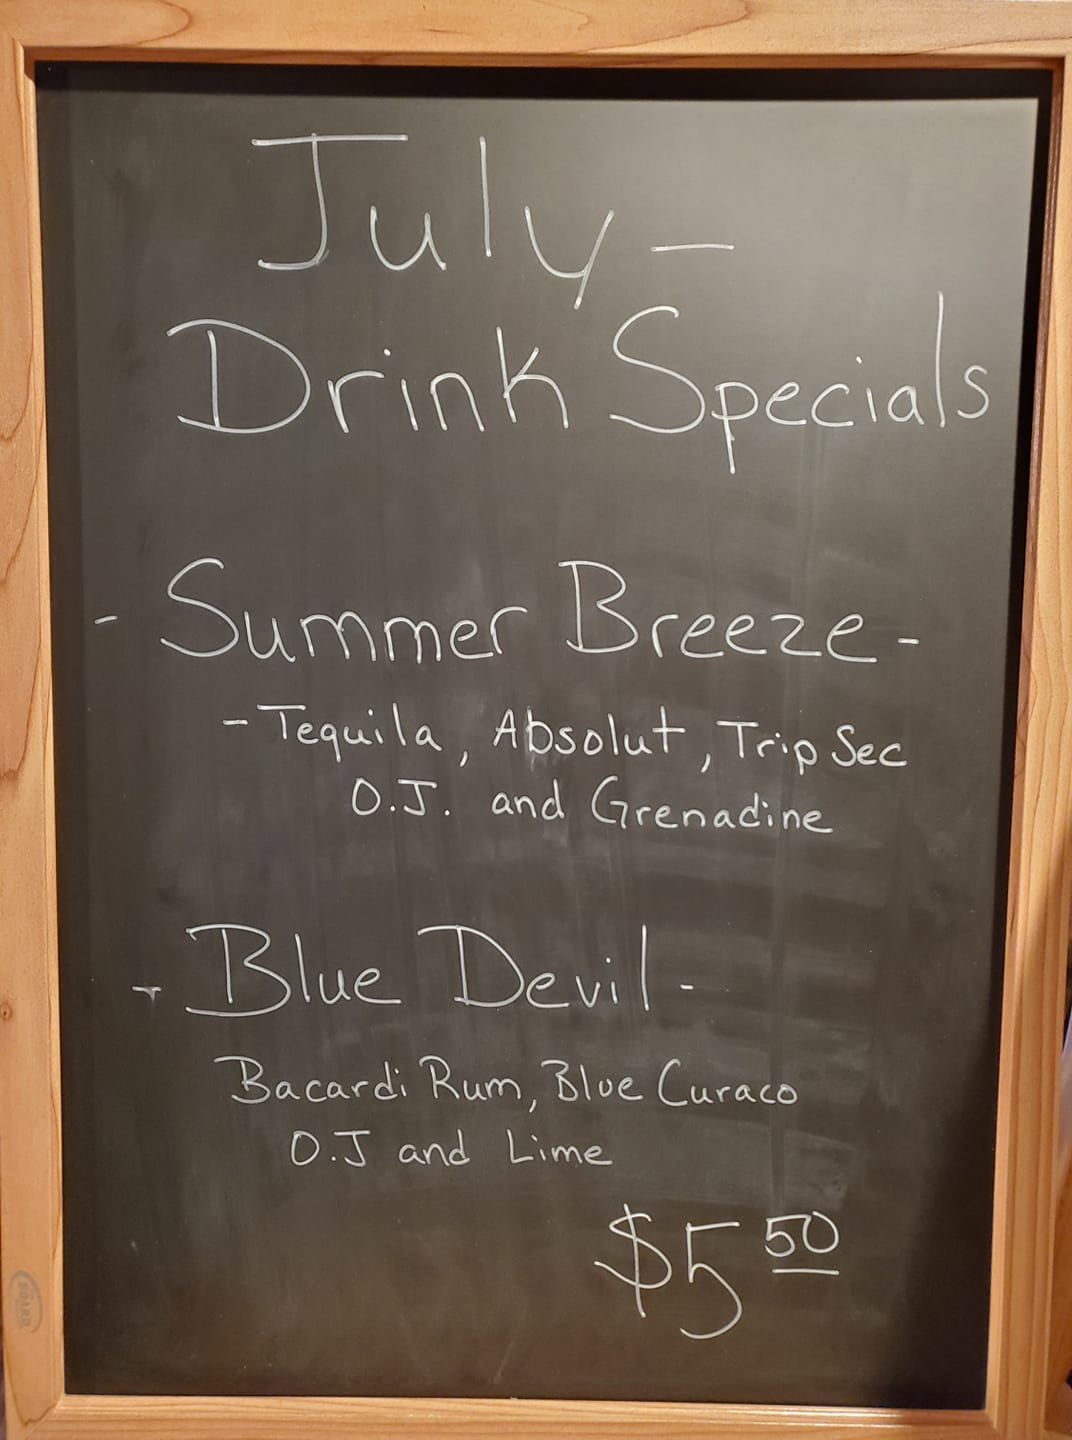 July -
Drink Specials
- Summer Breeze -
- Tequila, Absolut, Trip Sec
O.J. and Grenadine
- Blue Devil -
Bacardi Rum, Blue Curaco
O.J and Lime
$5 50